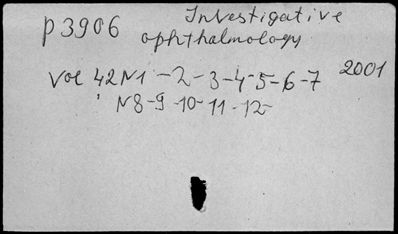 p3906 Investigative
ophthalmology
Vol 42N1-2-3-4-5-6-7 2001
N8-9-10-11-12-